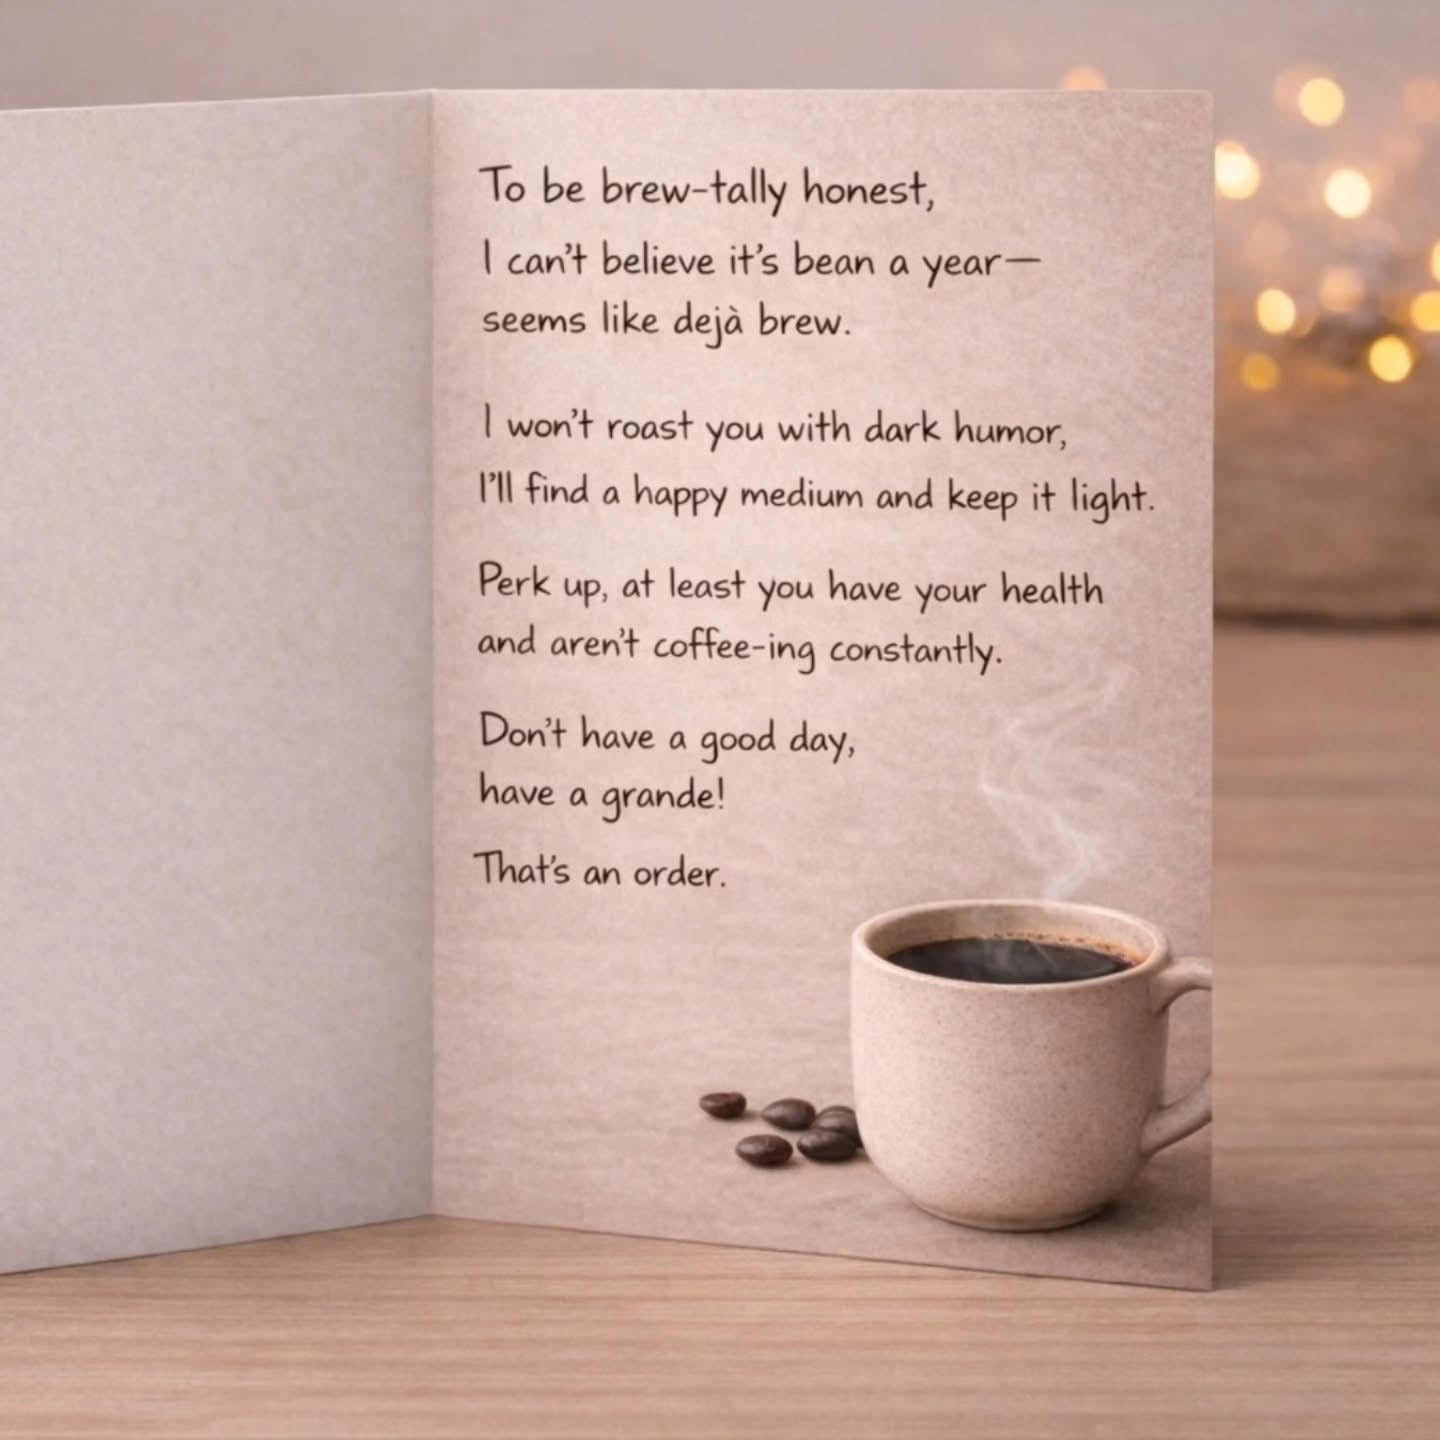 To be brew-tally honest,
I can't believe it's bean a year—
seems like dejà brew.
I won't roast you with dark humor,
I'll find a happy medium and keep it light.
Perk up, at least you have your health
and aren't coffee-ing constantly.
Don't have a good day,
have a grande!
That's an order.